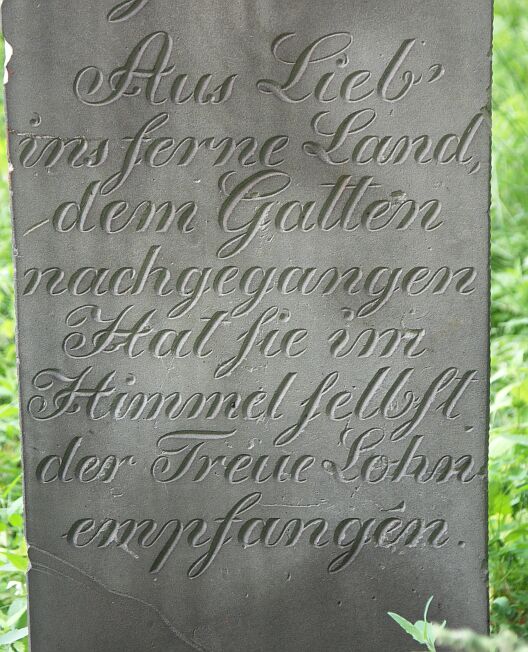 Aus Lieb'
ins ferne Land,
dem Gatten
nachgegangen
Hat ſie im
Himmel ſelbſt
der Treue Lohn
empfangen.